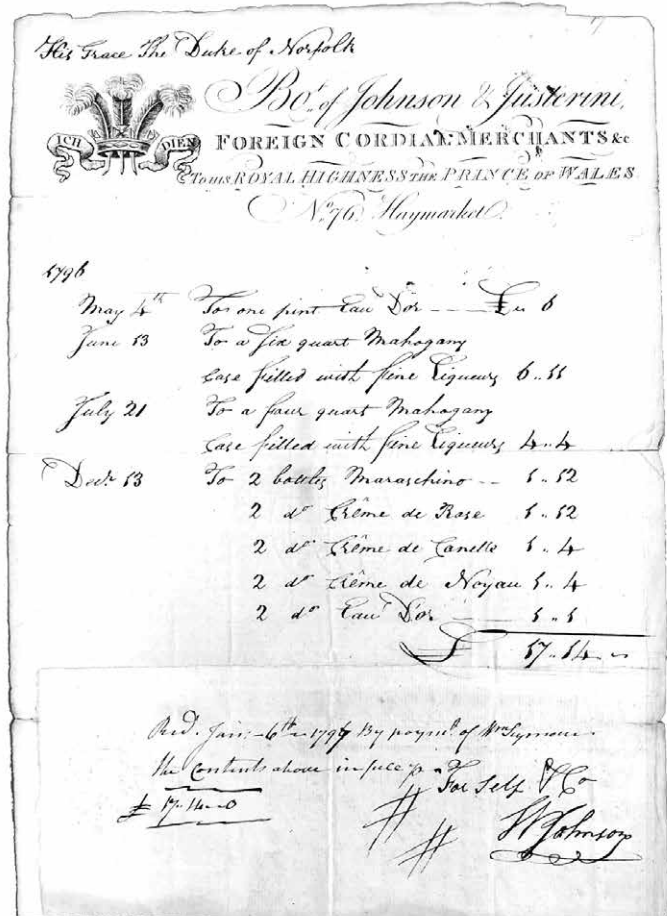 His Grace The Duke of Norfolk
ICH DIEN
Bot. of Johnson & Justerini,
FOREIGN CORDIAL MERCHANTS &c
To HIS ROYAL HIGHNESS THE PRINCE OF WALES
No. 76 Haymarket
1796
May 4th To one pint Eau D'or — £ „ 6
June 13 To a six quart Mahogany
Case filled with fine Liqueurs 6 „ 11
July 21 To a four quart Mahogany
Case filled with fine Liqueurs 4 „ 4
Decr. 13 To 2 bottles Maraschino -- 1 „ 12
2 do Crême de Rose 1 „ 12
2 do Crême de Canelle 1 „ 4
2 do Crême de Noyau 1 „ 4
2 do Eau D'or — 1 „ 1
£ 17 „ 14 „
Recd. Jany. 6th 1797 By paymt. of Wm Seymour
the Contents above in full
For Self & Co
£ 17-14-0
Johnson